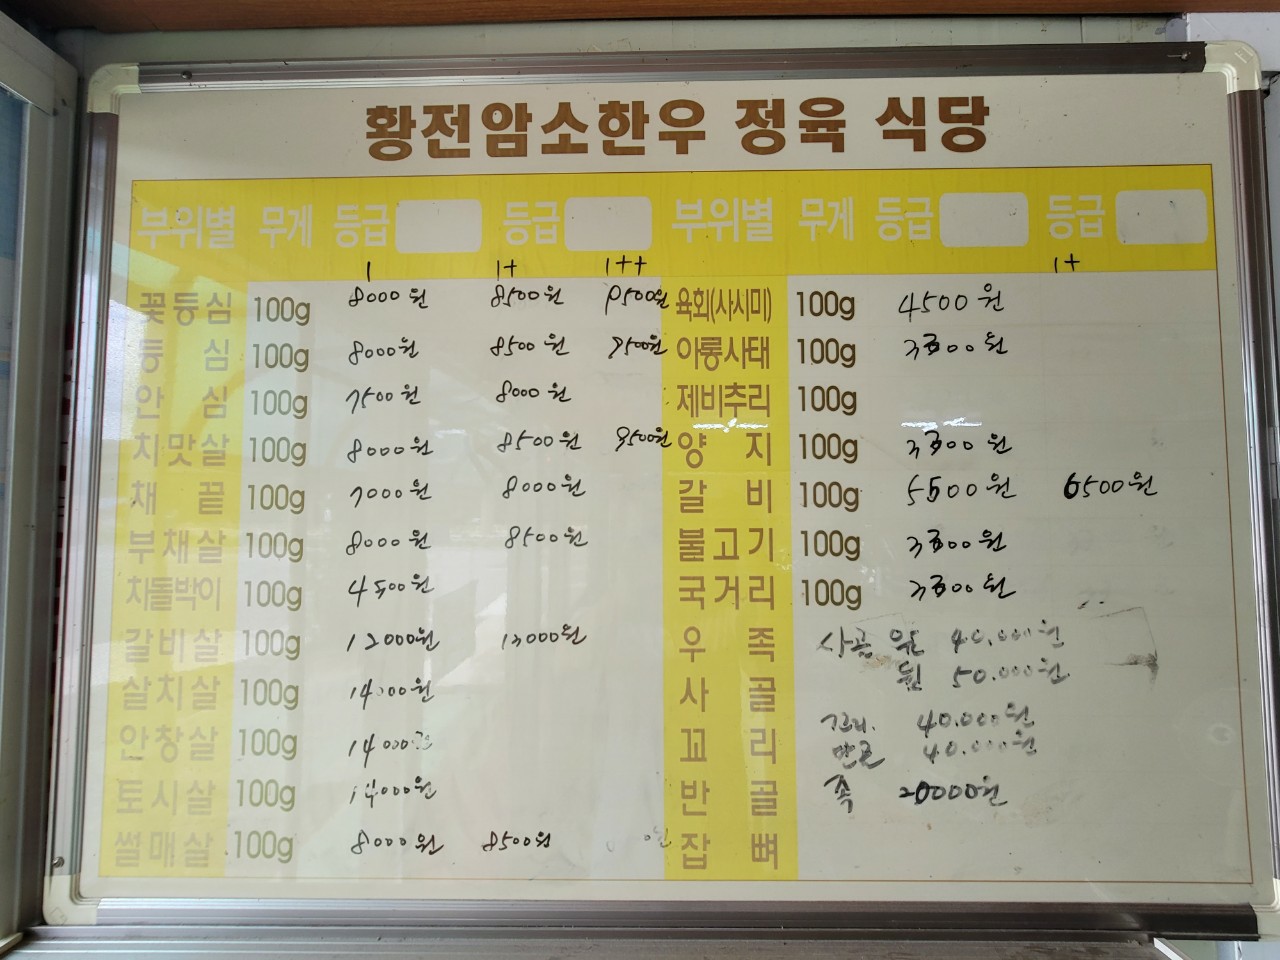 황전암소한우 정육 식당
부위별 무게 등급 등급 부위별 무게 등급 등급
1 1+ 1++ 1+
꽃등심 100g 8000원 8500원 9500원 육회(사시미) 100g 4500원
등심 100g 8000원 8500원 9500원 아롱사태 100g 3300원
안심 100g 7500원 8000원 제비추리 100g
치맛살 100g 8000원 8500원 9500원 양지 100g 3300원
채끝 100g 7000원 8000원 갈비 100g 5500원 6500원
부채살 100g 8000원 8500원 불고기 100g 3300원
차돌박이 100g 4500원 국거리 100g 3300원
갈비살 100g 12000원 13000원 우족 사골 40.000원
살치살 100g 14000원 사골 50.000원
안창살 100g 14000원 꼬리 꼬리. 40.000원
반골 40.000원
토시살 100g 14000원 반골 족 20000원
썰매살 100g 8000원 8500원 원 잡뼈